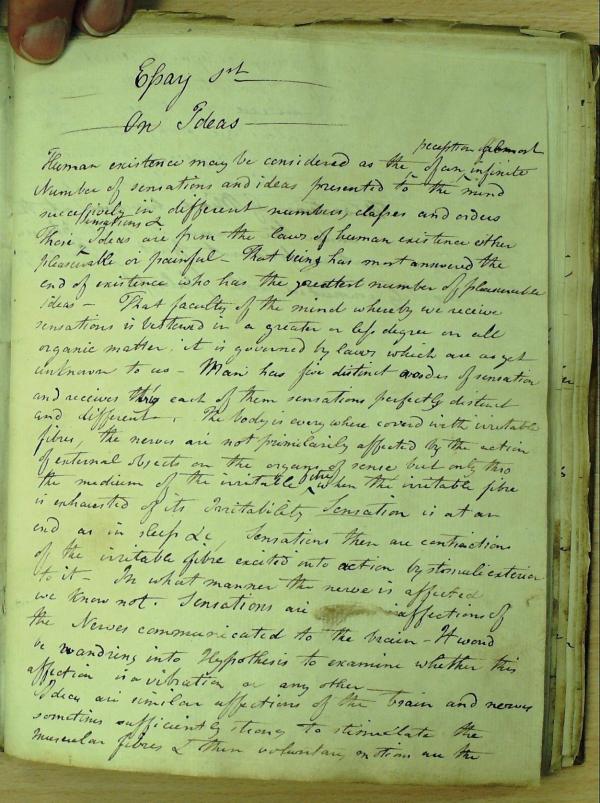 Essay 1st
On Ideas
perception almost
Human existence may be considered as the of an infinite
Number of sensations and ideas presented to the mind
successively in different numbers, classes and orders
sensations &
These Ideas are from the laws of human existence either
pleasurable or painful — That being has most answered the
end of existence who has the greatest number of pleasurable
ideas — That faculty of the mind whereby we receive
sensations is bestowed in a greater or less degree on all
organic matter, it is governed by laws which are as yet
unknown to us — Man has five distinct modes of sensation
and receives thro each of them sensations perfectly distinct
and different. The body is every where coverd with irritable
fibres, the nerves are not primilarily affected by the action
of external objects on the organs of sense but only thro
the medium of the irritable fibre when the irritable fibre
is exhausted of its Irritability Sensation is at an
end as in sleep &c, Sensations then are contractions
of the irritable fibre excited into action by stimuli exterior
to it — In what manner the nerve is affected
we know not. Sensations are affections of
the Nerves communicated to the brain — It woud
be wandring into Hypothesis to examine whether this
affection is a vibration or any other —
Ideas are similar affections of the brain and nerves
sometimes sufficiently strong to stimulate the
muscular fibres & then voluntary motions are the